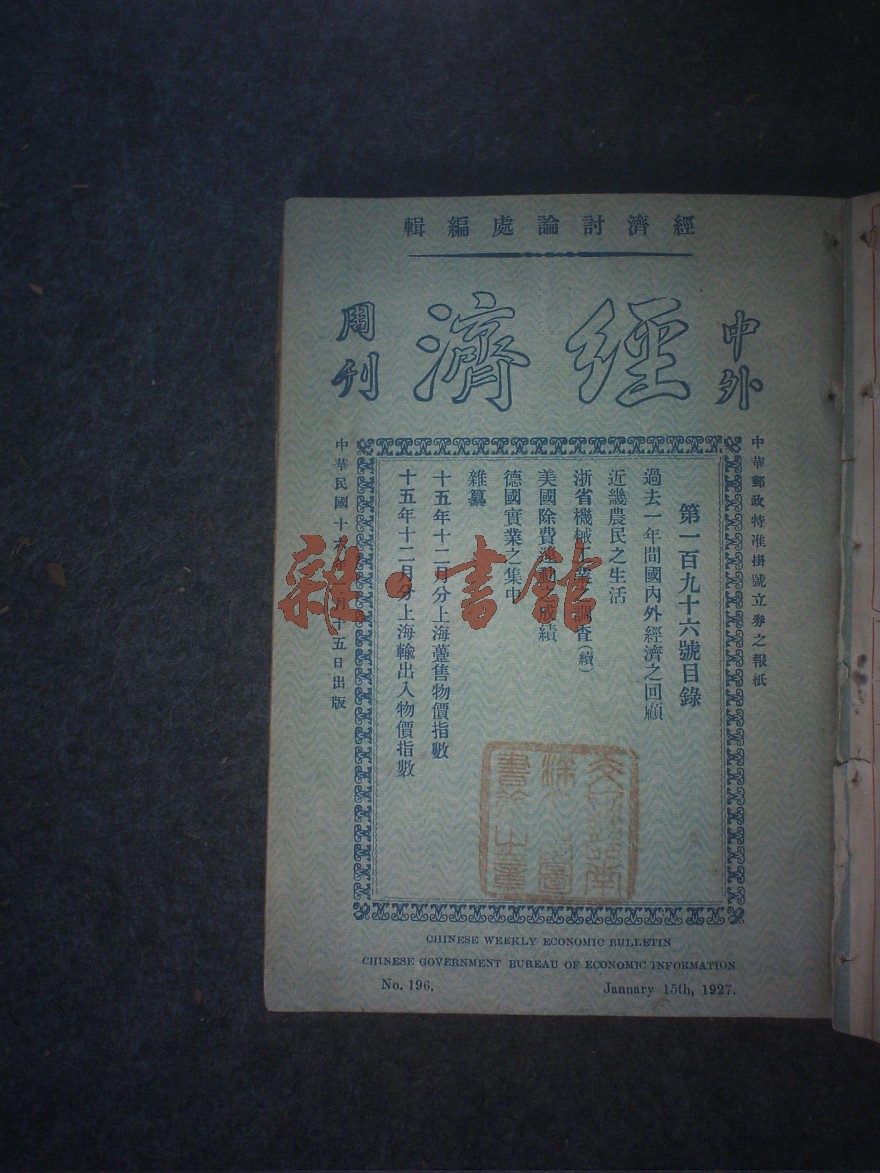 經濟討論處編輯
中外
經濟
周刊
中華郵政特准掛號立券之報紙
第一百九十六號目錄
過去一年間國內外經濟之回顧
近畿農民之生活
浙省機械工業之調查(續)
美國除費運動之成績
德國實業之集中
雜纂
十五年十二月分上海躉售物價指數
十五年十二月分上海輸出入物價指數
中華民國十六年一月十五日出版
雜·書館
CHINESE WEEKLY ECONOMIC BULLETIN
CHINESE GOVERNMENT BUREAU OF ECONOMIC INFORMATION
No. 196.
January 15th, 1927.